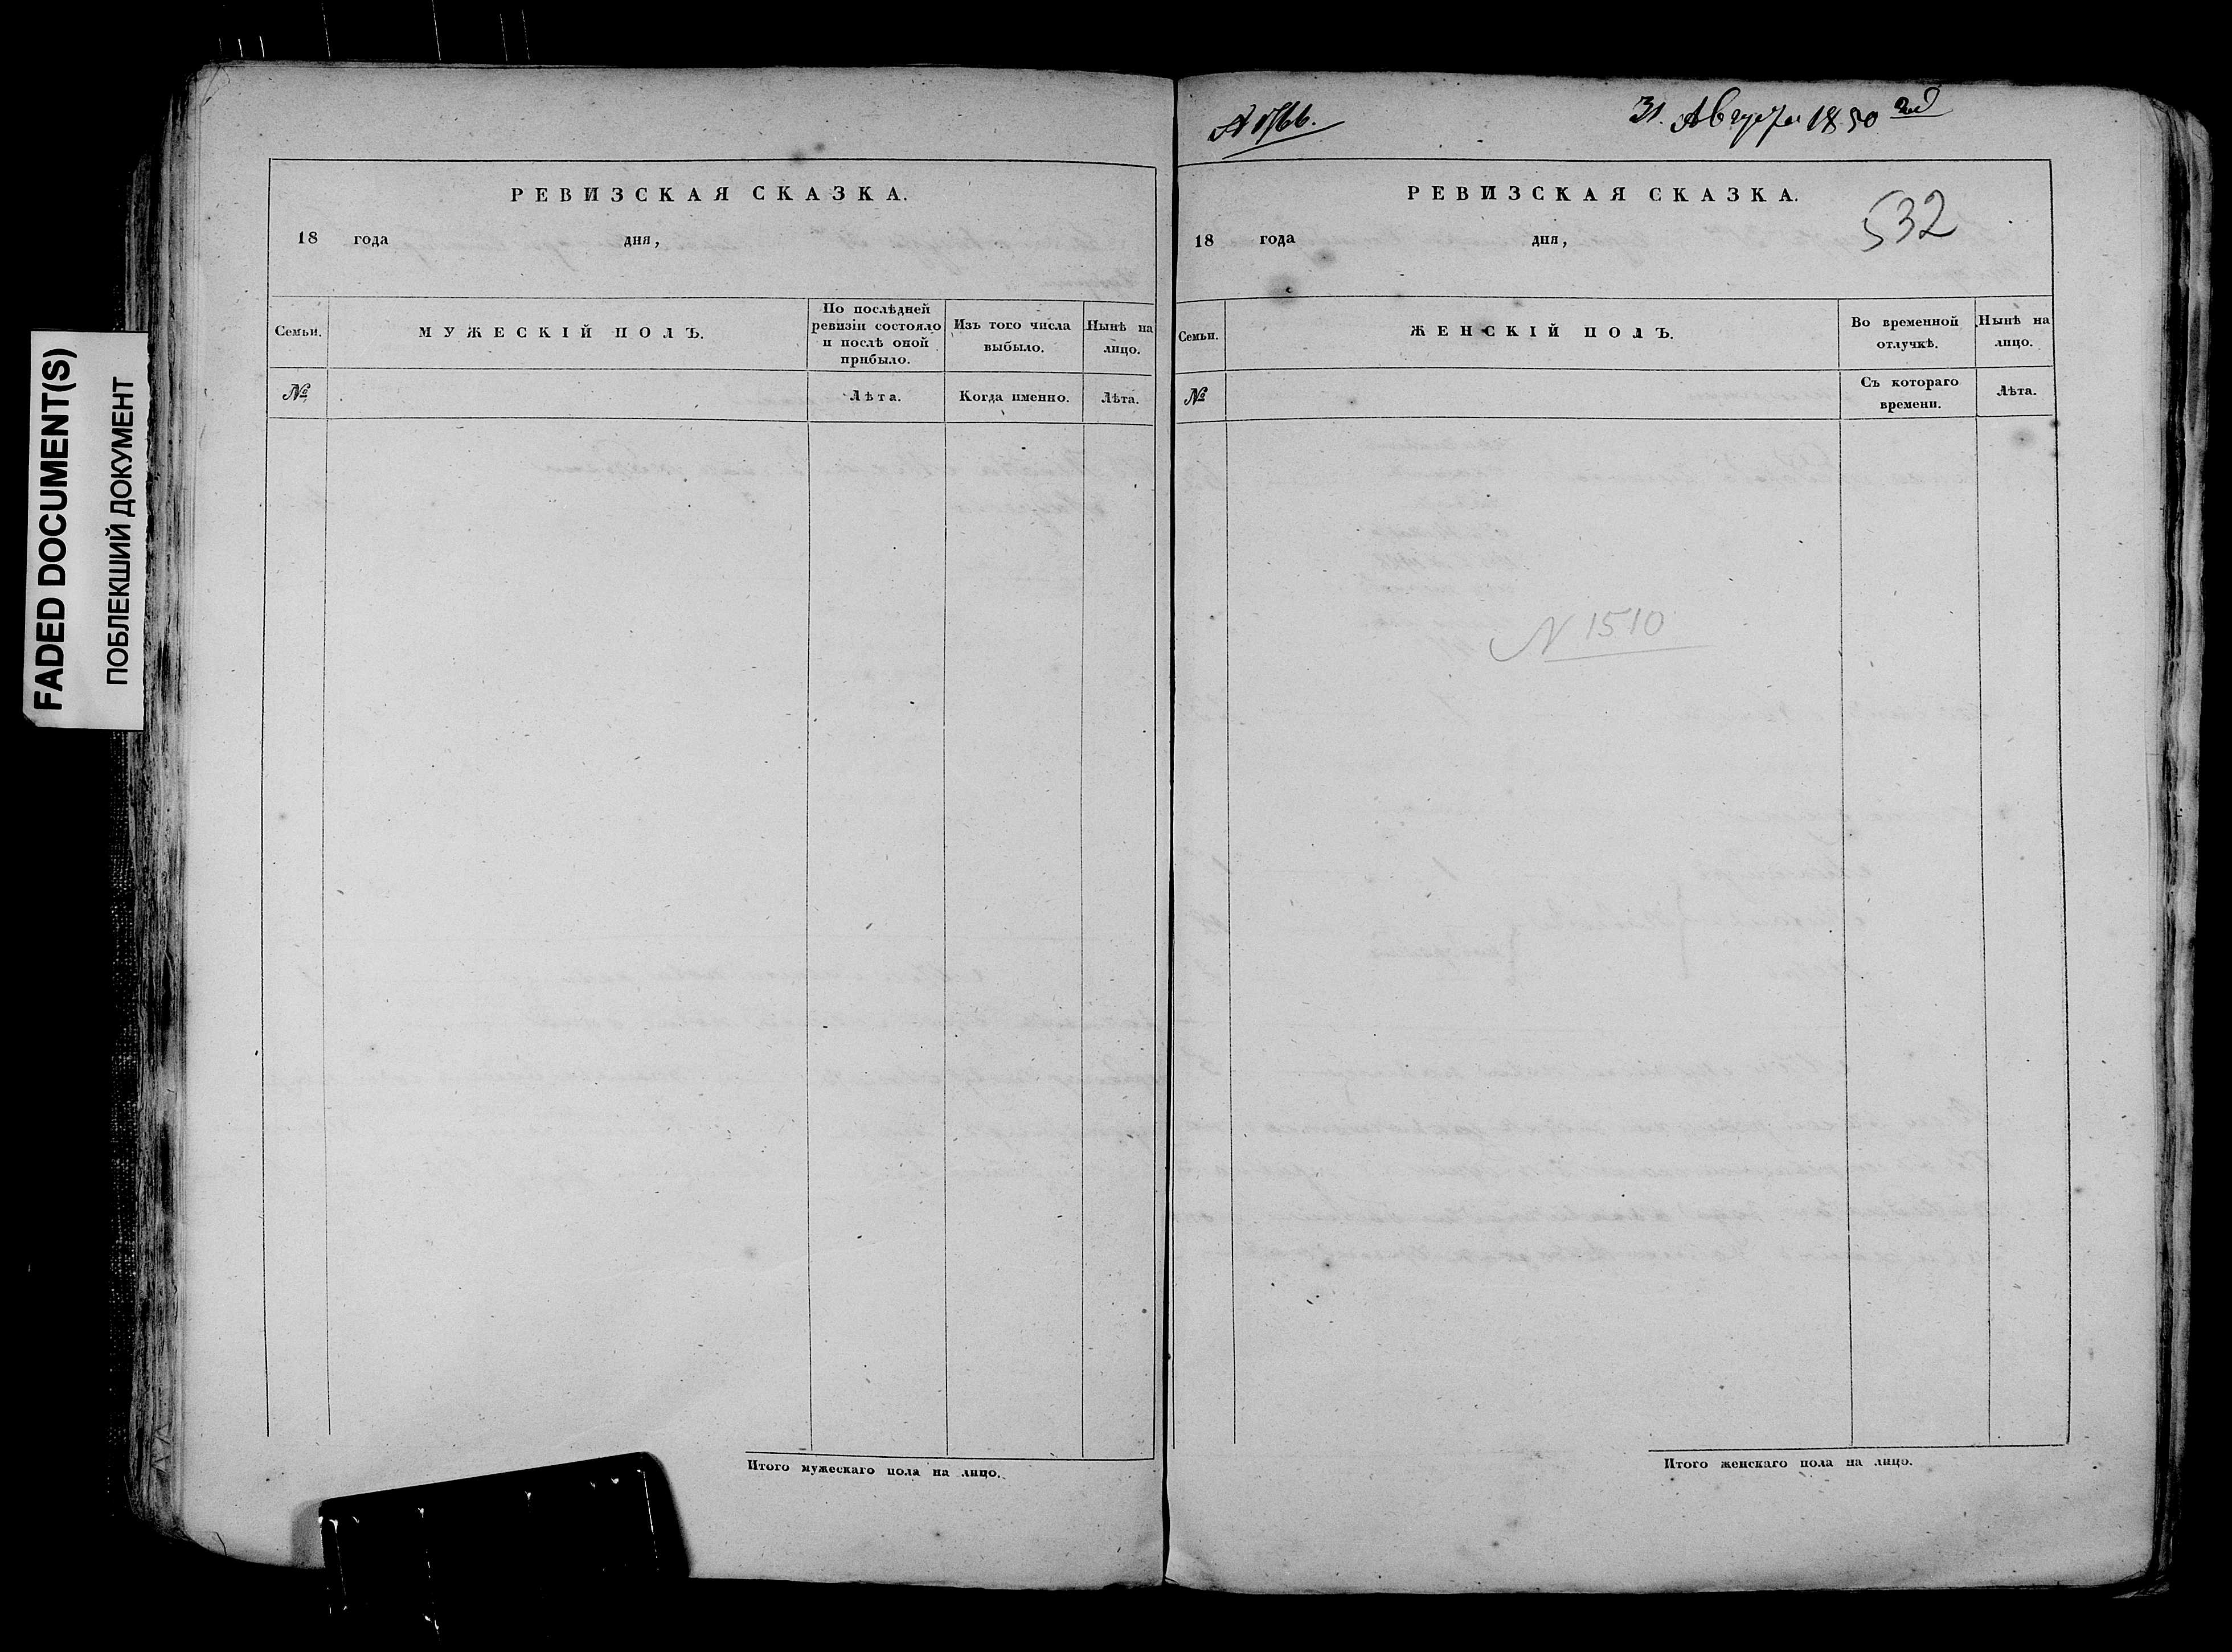 FADED DOCUMENT(S)
ПОБЛЕКШИЙ ДОКУМЕНТ
РЕВИЗСКАЯ СКАЗКА.
18 года дня,
Семьи.
МУЖЕСКІЙ ПОЛЪ.
По послѣдней
ревизіи состояло
и послѣ оной
прибыло.
Изъ того числа
выбыло.
Нынѣ на
лицо.
№
Лѣта.
Когда именно.
Лѣта.
Итого мужескаго пола на лицо.
31. Августа 1850 год
РЕВИЗСКАЯ СКАЗКА.
532
18 года дня,
Семьи.
ЖЕНСКІЙ ПОЛЪ.
Во временной
отлучкѣ.
Нынѣ на
лицо.
№
Съ котораго
времени.
Лѣта.
N 1510
Итого женскаго пола на лицо.